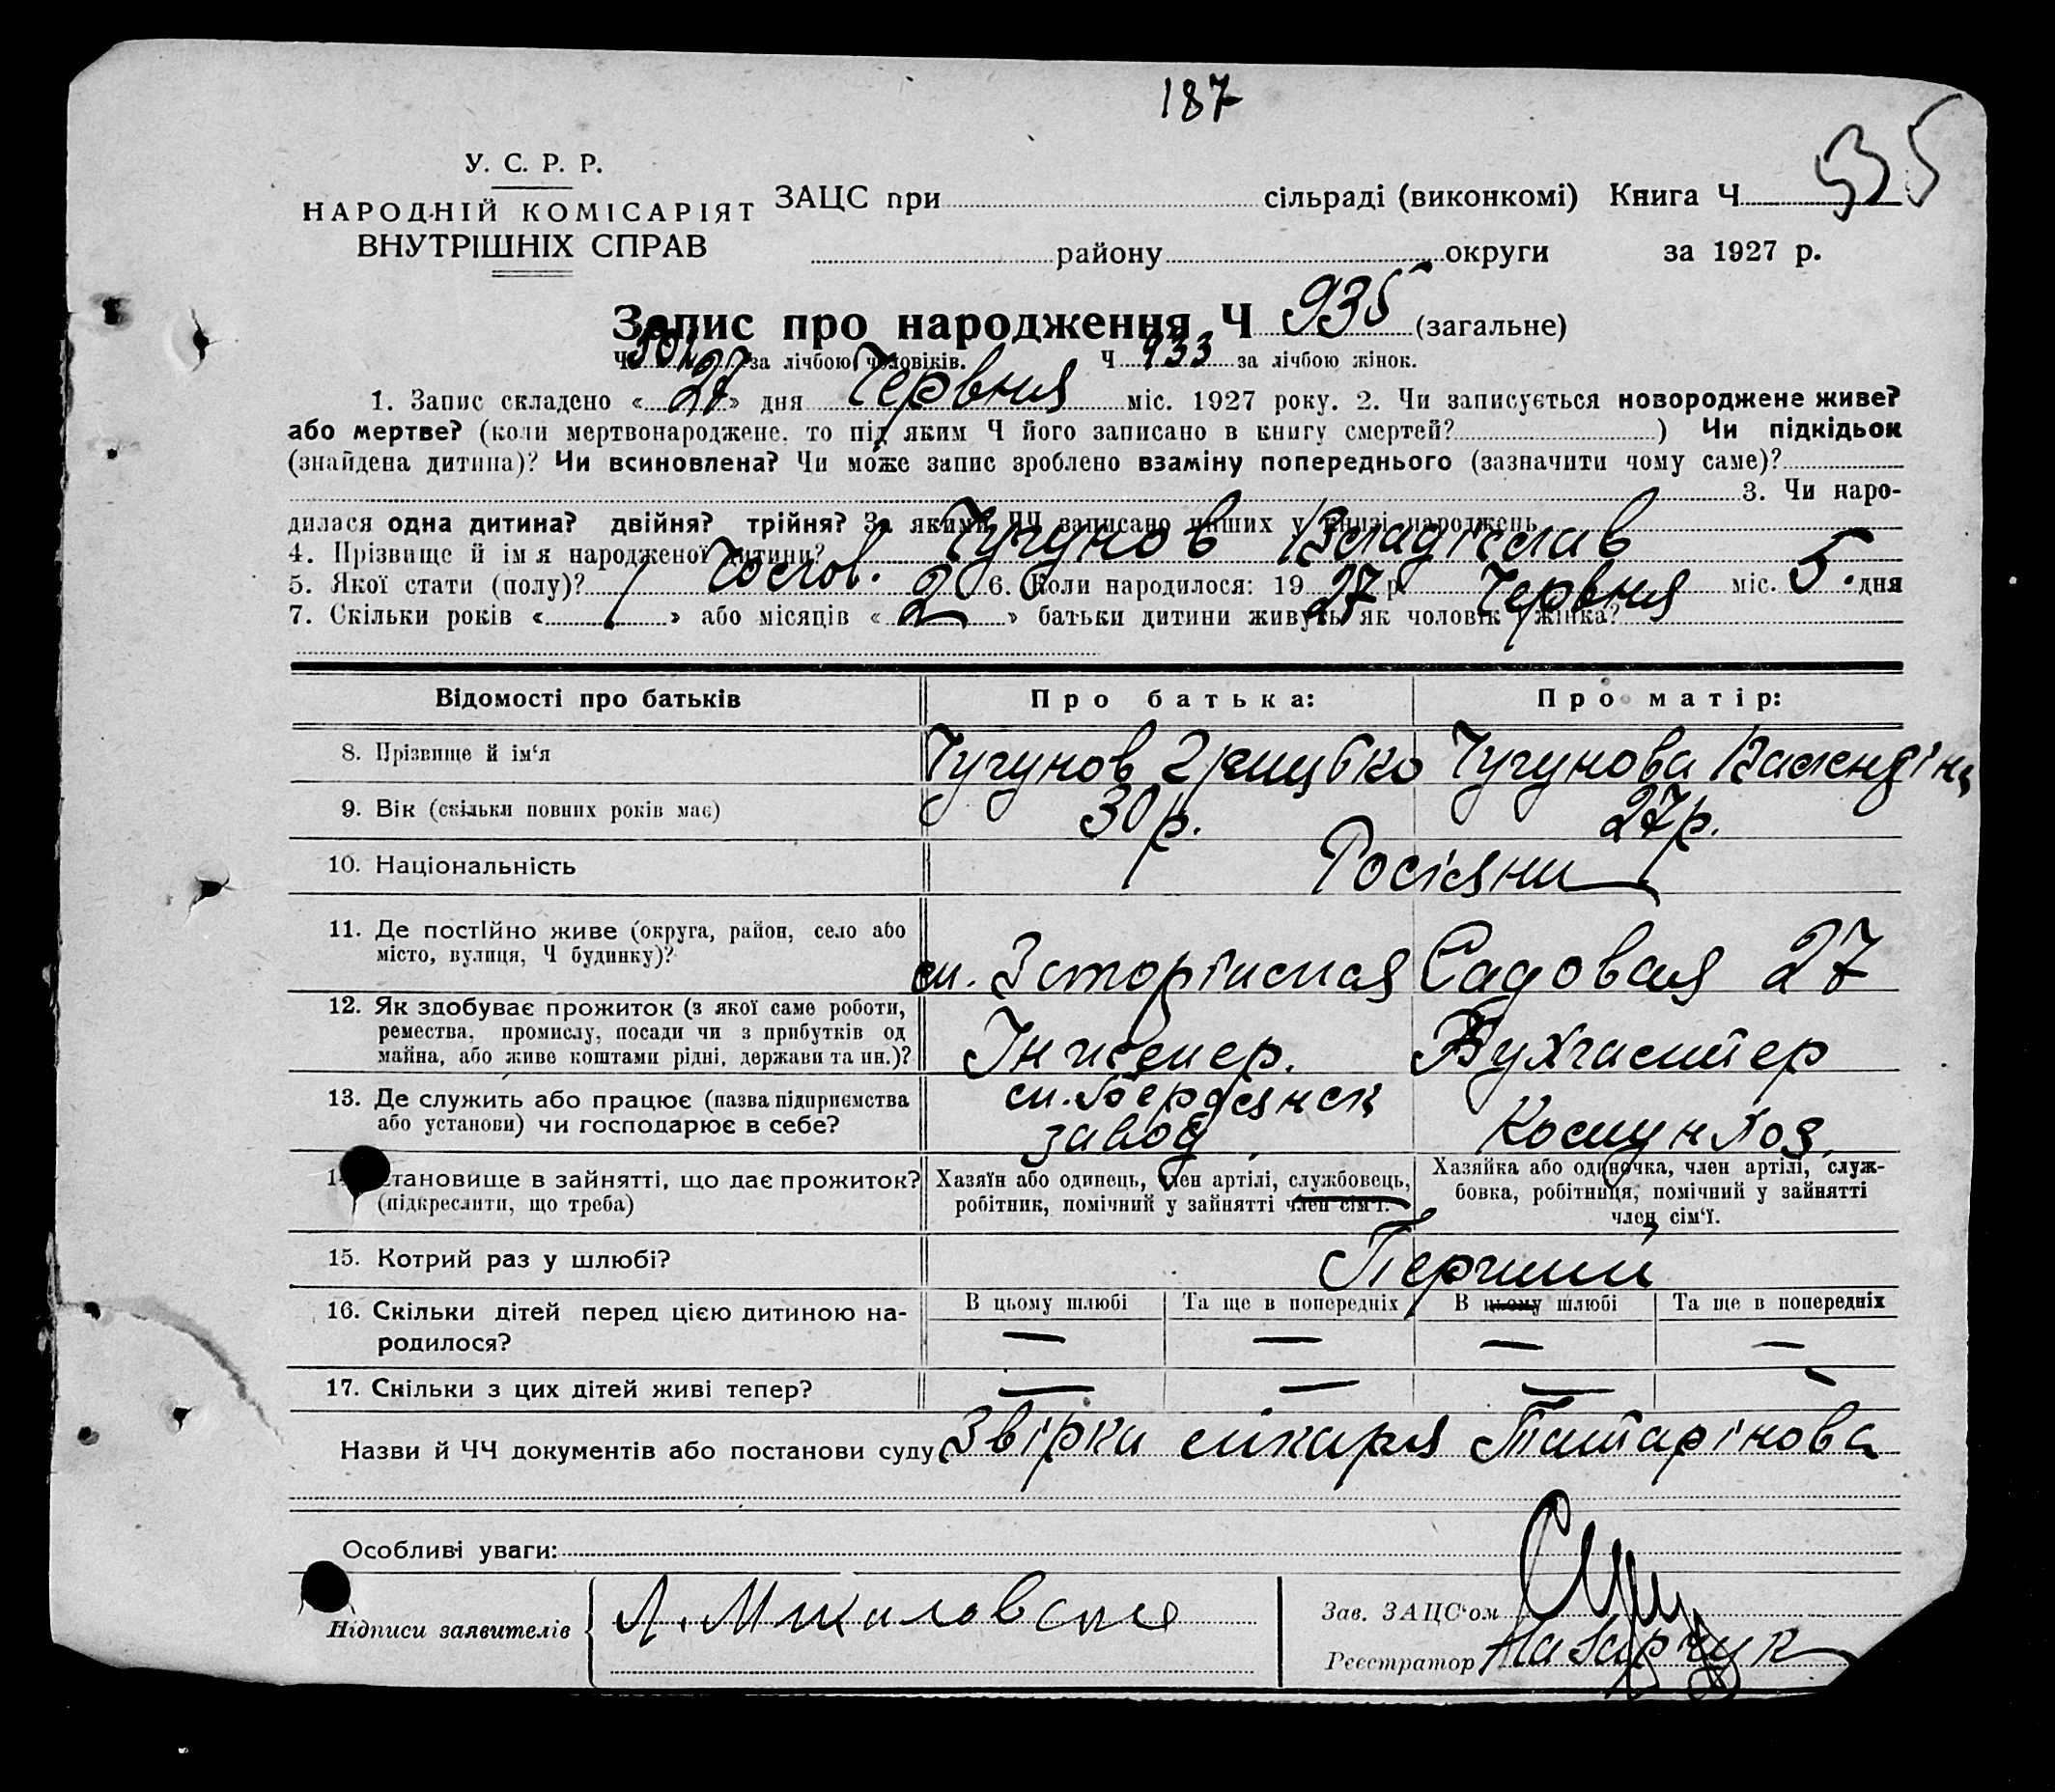 187
935
У. С. Р. Р.
НАРОДНІЙ КОМІСАРІЯТ
ВНУТРІШНІХ СПРАВ
ЗАЦС при сільраді (виконкомі) Книга Ч
району округи за 1927 р.
Запис про народження Ч 935 (загальне)
Ч за лічбою чоловіків. Ч 433 за лічбою жінок.
1. Запис складено «27» дня Червня міс. 1927 року. 2. Чи записується новороджене живе?
або мертве? (коли мертвонароджене, то під яким Ч його записано в книгу смертей? ) Чи підкідьок
(знайдена дитина)? Чи всиновлена? Чи може запис зроблено взаміну попереднього (зазначити чому саме)?
3. Чи наро-
дилася одна дитина? двійня? трійня? За якими ЧЧ записано инших у книзі народжень
4. Прізвище й ім'я народженої дитини? Чугунов Владіслав
5. Якої стати (полу)? Чолов. 6. Коли народилося: 1927 р. Червня міс. 5 дня
7. Скільки років « / » або місяців « 2 » батьки дитини живуть як чоловік і жінка?
Відомості про батьків Про батька: Про матір:
8. Прізвище й ім'я Чугунов Грицько Чугунова Валендіна
9. Вік (скільки повних років має) 30 р. 27 р.
10. Національність Росіяни
11. Де постійно живе (округа, район, село або
місто, вулиця, Ч будинку)? Садовая 27
12. Як здобуває прожиток (з якої саме роботи,
ремества, промислу, посади чи з прибутків од
майна, або живе коштами рідні, держави та ин.)? Інженер. Бухгалтер
13. Де служить або працює (назва підприємства
або установи) чи господарює в себе? м. Бердянск
завод Комунхоз
14. Становище в зайнятті, що дає прожиток?
(підкреслити, що треба)
Хазяїн або одинець, член артілі, службовець,
робітник, помічний у зайнятті член сім'ї.
Хазяйка або одиночка, член артілі, служ-
бовка, робітниця, помічний у зайнятті
член сім'ї.
15. Котрий раз у шлюбі? Перший
16. Скільки дітей перед цією дитиною на-
родилося?
В цьому шлюбі Та ще в попередніх В цьому шлюбі Та ще в попередніх
— — — —
17. Скільки з цих дітей живі тепер? — — — —
Назви й ЧЧ документів або постанови суду Звірка лікаря Татарінова
Особливі уваги:
Підписи заявителів
Зав. ЗАЦС'ом
Реєстратор Назарчук